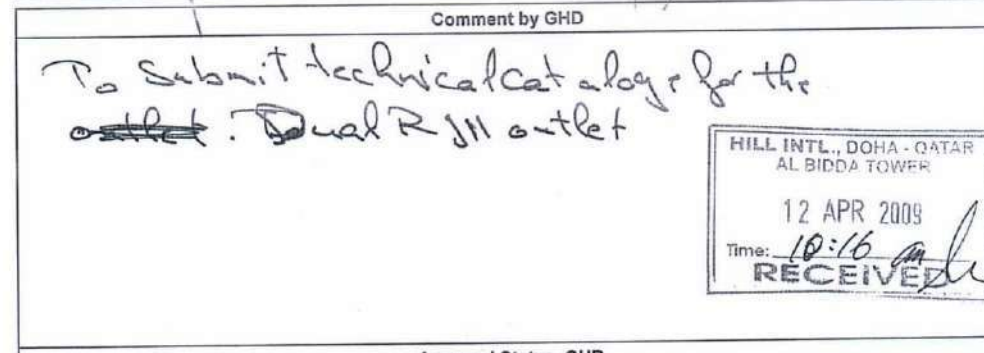 Comment by GHD
To Submit technical cataloge for the
outlet. Dual RJ11 outlet
HILL INTL., DOHA - QATAR
AL BIDDA TOWER
12 APR 2009
Time: 10:16 am
RECEIVED